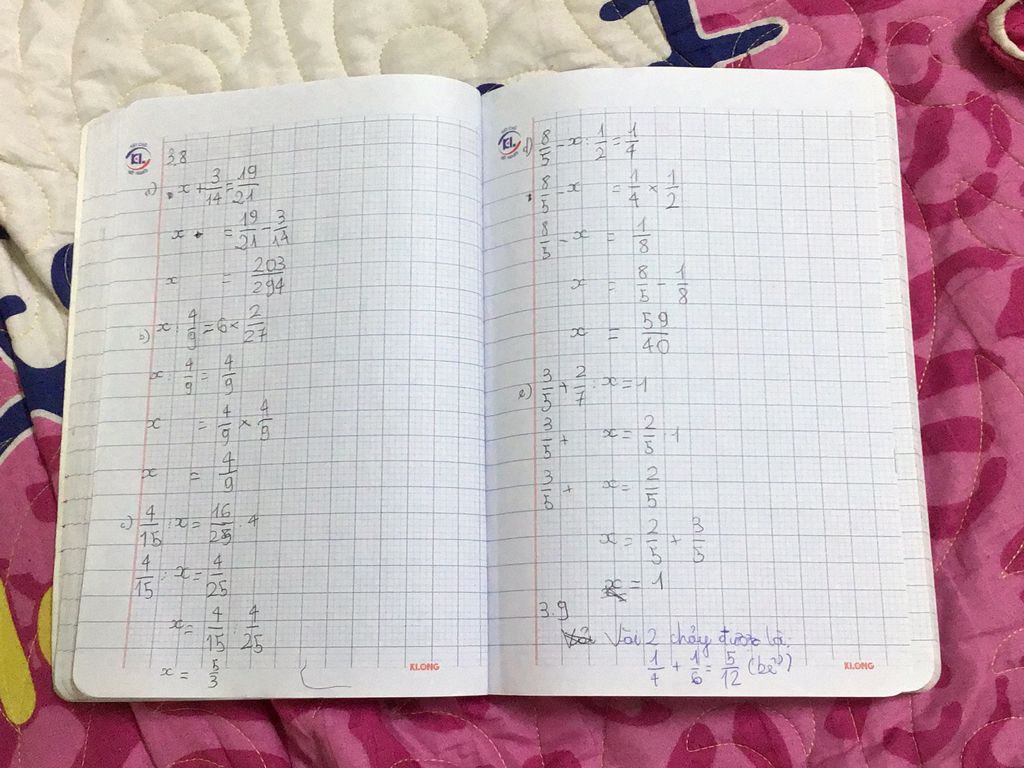 3.8
a) x + 3/14 = 19/21
x = 19/21 - 3/14
x = 203/294
b) x : 4/9 = 6 × 2/27
x : 4/9 = 4/9
x = 4/9 × 4/9
x = 4/9
c) 4/15 : x = 16/25 : 4
4/15 : x = 4/25
x = 4/15 : 4/25
x = 5/3
KLONG
d) 8/5 - x : 1/2 = 1/4
8/5 - x = 1/4 × 1/2
8/5 - x = 1/8
x = 8/5 - 1/8
x = 59/40
e) 3/5 + 2/7 : x = 1
3/5 + x = 2/5 : 1
3/5 + x = 2/5
x = 2/5 + 3/5
x = 1
3.9
Vòi 2 chảy được là:
1/4 + 1/6 = 5/12 (bể)
KLONG